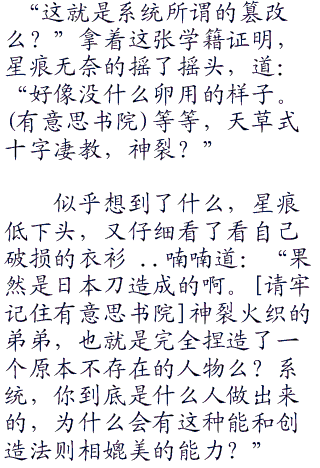 “这就是系统所谓的篡改
么？”拿着这张学籍证明，
星痕无奈的摇了摇头，道：
“好像没什么卵用的样子。
(有意思书院)等等，天草式
十字凄教，神裂？”
似乎想到了什么，星痕
低下头，又仔细看了看自己
破损的衣衫 ..喃喃道：“果
然是日本刀造成的啊。[请牢
记住有意思书院]神裂火织的
弟弟，也就是完全捏造了一
个原本不存在的人物么？系
统，你到底是什么人做出来
的，为什么会有这种能和创
造法则相媲美的能力？”